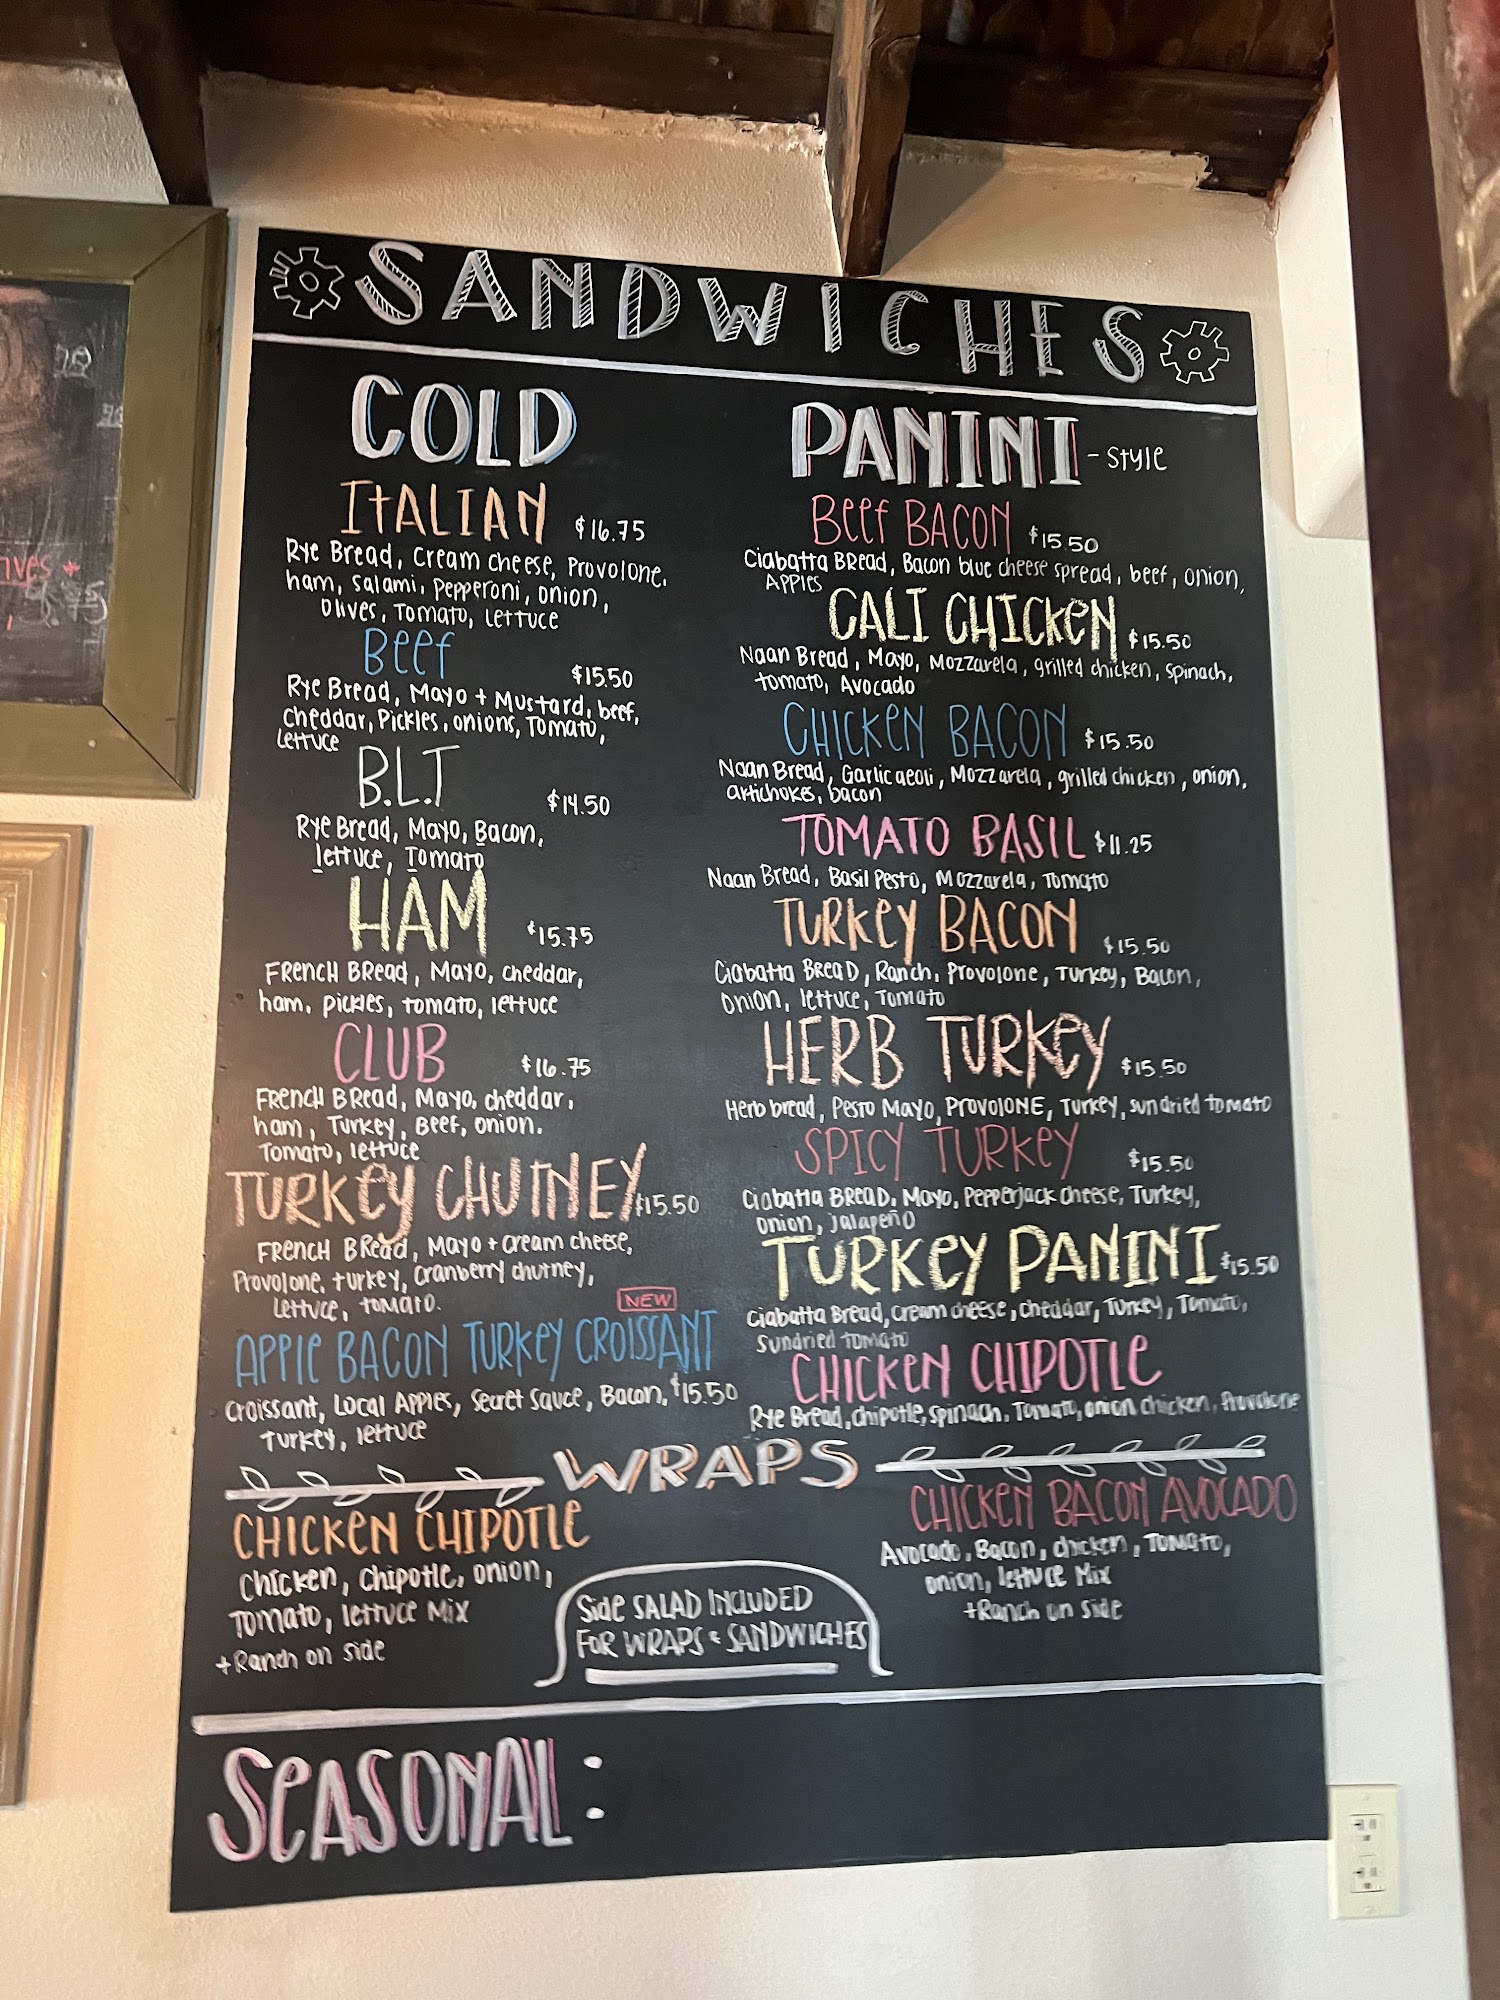 SANDWICHES
COLD
ITALIAN $16.75
Rye Bread, cream cheese, Provolone,
ham, salami, Pepperoni, onion,
Olives, Tomato, Lettuce
Beef $15.50
Rye Bread, Mayo + Mustard, beef,
cheddar, Pickles, onions, Tomato,
Lettuce
B.L.T $14.50
Rye Bread, Mayo, Bacon,
lettuce, Tomato
HAM $15.75
FRENCH BRead, Mayo, cheddar,
ham, pickles, tomato, lettuce
CLUB $16.75
FRENCH BRead, Mayo, cheddar,
ham, Turkey, Beef, onion.
Tomato, lettuce
TURKEY CHUTNEY $15.50
FRENCH BRead, Mayo + cream cheese,
Provolone, turkey, cranberry chutney,
Lettuce, tomato.
NEW
APPLE BACON TURKEY CROISSANT
croissant, Local Apples, Secret Sauce, Bacon, $15.50
Turkey, lettuce
PANINI - Style
Beef BACON $15.50
Ciabatta BRead, Bacon blue cheese spread, beef, onion,
APPles
CALI CHICKEN $15.50
Naan Bread, Mayo, Mozzarela, grilled chicken, spinach,
tomato, Avocado
CHICKEN BACON $15.50
Naan Bread, Garlic aeoli, Mozzarela, grilled chicken, onion,
artichokes, bacon
TOMATO BASIL $11.25
Naan Bread, Basil Pesto, Mozzarela, Tomato
TURKEY BACON $15.50
Ciabatta BReaD, Ranch, Provolone, Turkey, Bacon,
Onion, lettuce, Tomato
HERB TURKEY $15.50
Herb bread, Pesto Mayo, PROVOLONE, Turkey, sundried tomato
SPICY TURKEY $15.50
Ciabatta BREaD, Mayo, PepperJack cheese, Turkey,
onion, jalapeño
TURKEY PANINI $15.50
Ciabatta Bread, cream cheese, cheddar, Turkey, Tomato,
Sundried tomato
CHICKEN CHIPOTLE
Rye Bread, chipotle, spinach, Tomato, onion chicken, Provolone
WRAPS
CHICKEN CHIPOTLE
chicken, chipotle, onion,
Tomato, lettuce Mix
+Ranch on side
Side SALAD INCLUDED
FOR WRAPS & SANDWICHES
CHICKEN BACON AVOCADO
Avocado, Bacon, chicken, TOMATO,
onion, lettuce Mix
+Ranch on side
SEASONAL: